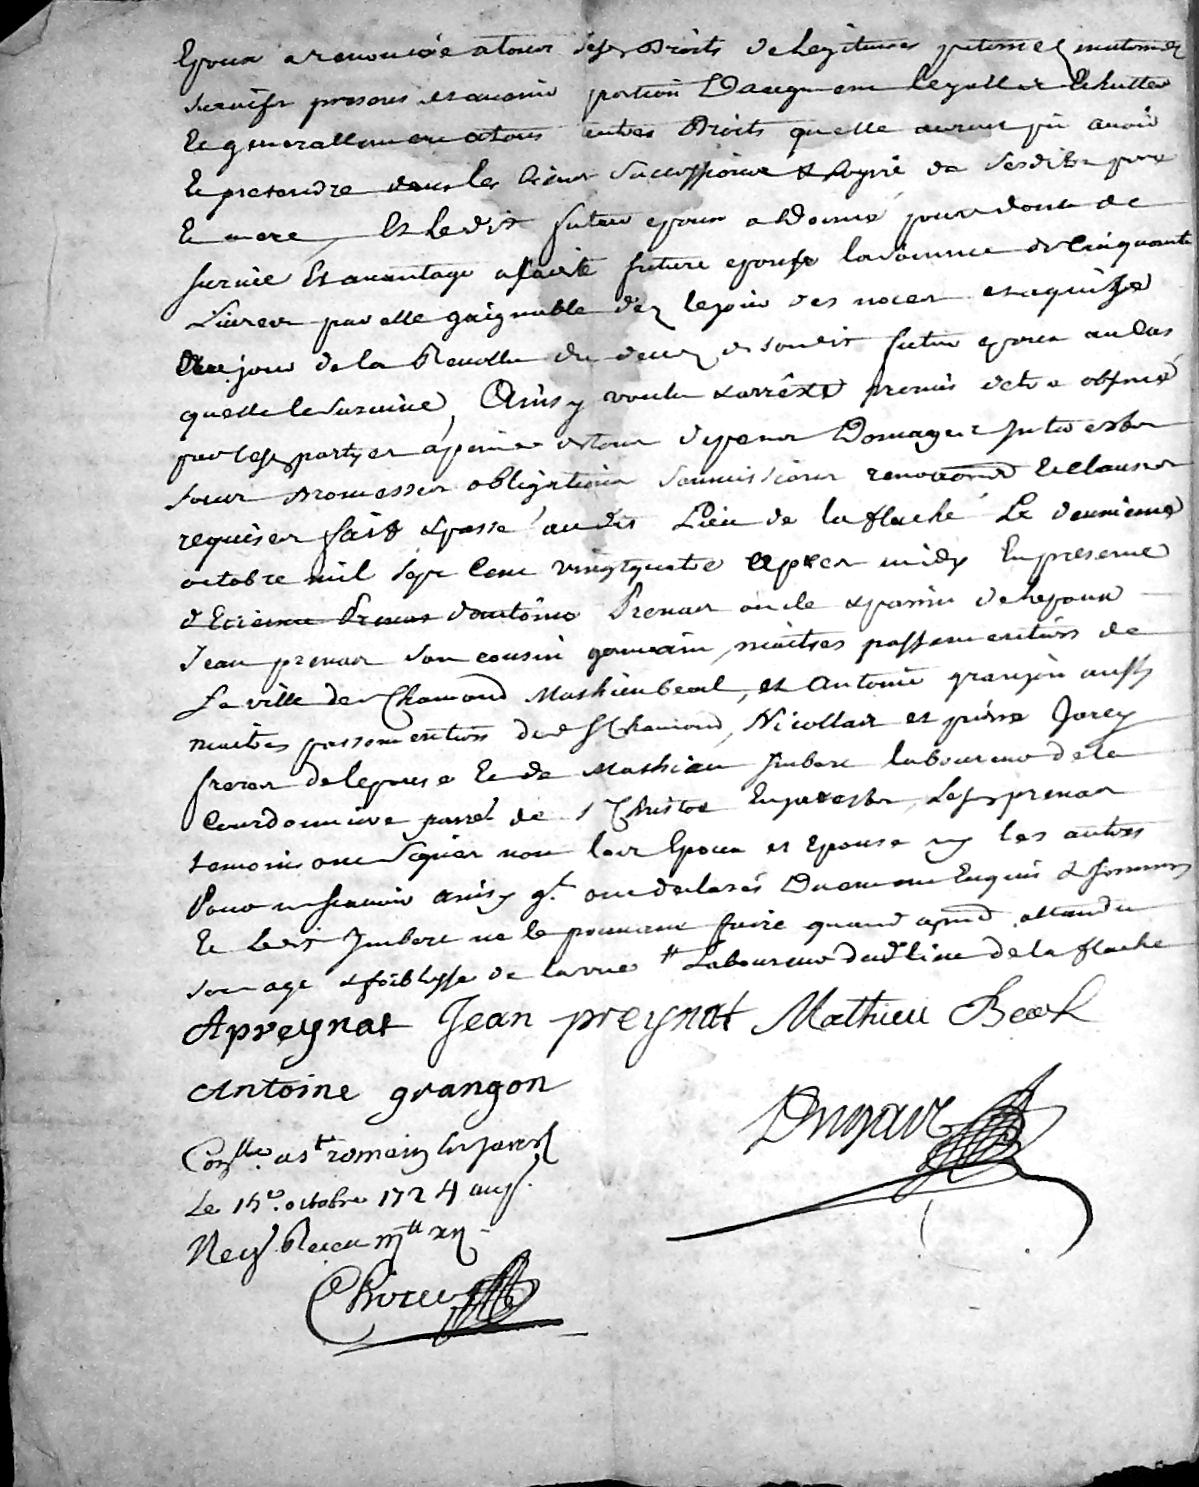 Epoux a renoncée atous sesd droits de legitimes paternel maternel
survie presens et avenir portion Daugment legallie Echutte
Et generallement atous autres Droits quelle auroit pû avoir
Et pretendre dans les biens Successions & hoyrie de sesdits pere
Et mere, Et ledit futeur epoux a Donné pour dont de
survie Et avantage asaditte future epouse la somme de Cinquante
Livres par elle gaignable dez lejour des noces et aquize
jour de la Recolte du deces de soudit futur epoux au Cas
quelle le Survive, Ainsy voulu & arrêté promis detre observé
par lesd partyes apeine de tous depens Domages Interests
sous promesses obligations soumissions renontions Et clauses
requises fait & passé audit Lieu de la flache Le deuxieme
octobre mil Sept Cent vingtquatre apres midy En presence
d'Etienne Prenat d'antoine Prenat oncle & parrin de lepoux
Jean prenat son cousin germain, maitres passementiers de
La ville de Chamond Mathieu beal, et Antoine granjon aussy
maitres passementiers dud St Chamond, Nicollas et pierre Jarey
freres de lepouse Et de Mathieu Imbert laboureur de la
Courdonniere parroi de St Christoe Enjarest, Lesd prenat
temoins ont Signés non les Epoux et Epouse ny les autres
Pour ne scavoir ainsy qt. ont declarés Duement Enquis & sommés
Et Ledit Imbert ne le pouvant faire quand apnd attandu
son age & foiblesse de la vue # Laboureur dudt lieu de la flache
Apreynat Jean preynat Mathieu Beal
Antoine grangon
Conlle a st romain en jarest
Le 15e. octobre 1724
Recu